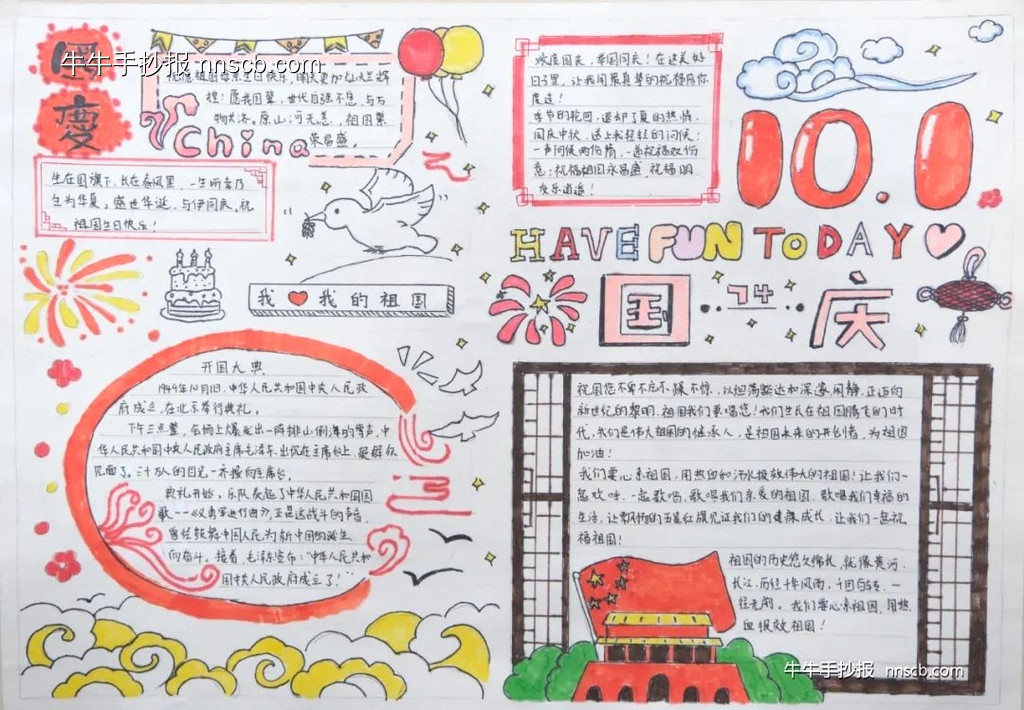 國慶
牛牛手抄报 nnscb.com
祝愿祖国母亲生日快乐，明天更加灿烂辉
煌；愿我国繁，世代自强不息，与万
物共济。原山河无恙，祖国繁
荣昌盛。
China
生在国旗下，长在春风里，一生所幸乃
生为华夏，盛世华诞，与伊同庆，祝
祖国生日快乐！
我❤我的祖国
欢度国庆，举国同庆！在这美好
日子里，让我用最真挚的祝福陪你
度过！
季节的轮回，退却了夏的热情，
国庆中秋，送上我轻轻的问候：
一声问候两份情，一送祝福双份
意；祝福祖国永昌盛，祝福朋
友乐逍遥！
牛牛手抄报 nnscb.com
10.1
HAVE FUN ToDAY
国··74··庆
开国大典
1949年10月1日，中华人民共和国中央人民政
府成立，在北京举行典礼。
下午三点整，会场上爆发出一阵排山倒海的掌声，中
华人民共和国中央人民政府主席毛泽东出现在主席台上，跟群众
见面了。三十万人的目光一齐投向主席台。
典礼开始，乐队奏起了中华人民共和国国
歌——《义勇军进行曲》，正是这战斗的声音，
曾经鼓舞中国人民为新中国的诞生
而奋斗。接着，毛泽东宣布：“中华人民共和
国中央人民政府成立了！”
祝国您不卑不亢不躁不惊，以坦荡豁达和深邃闲静，正迈向
新世纪的黎明。祖国我们要唱您！我们生长在祖国腾飞的时
代，我们是伟大祖国的继承人，是祖国未来的开创者，为祖国
加油！
我们要心系祖国，用热血和汗水报效伟大的祖国！让我们一
起欢呼，一起歌唱，歌唱我们亲爱的祖国，歌唱我们幸福的
生活，让飘扬的五星红旗见证我们的健康成长，让我们一起祝
福祖国！
祖国的历史悠久绵长，就像黄河、
长江，历经千年风雨，千回百转，一
往无前。我们要心系祖国，用热
血报效祖国！
牛牛手抄报 nnscb.com